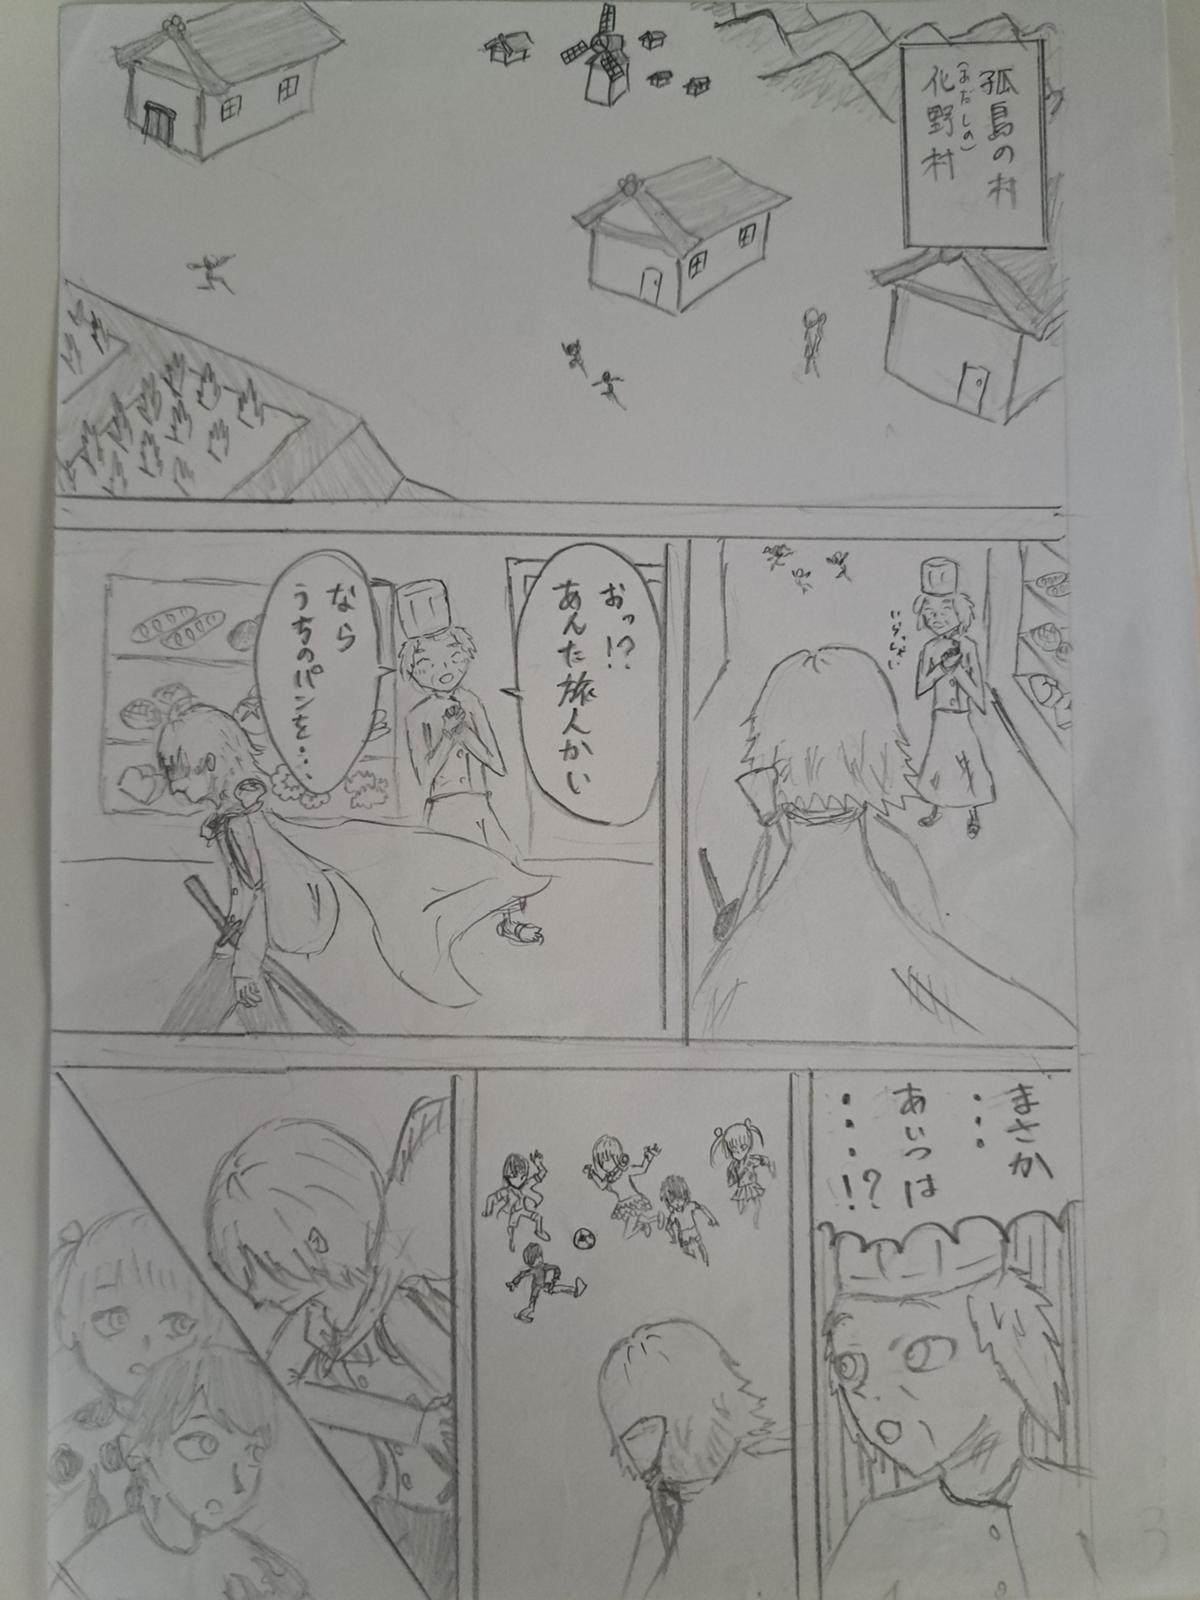 孤島の村
(あだしの)
化野村
いらっしゃい
おっ!?
あんた旅人かい
なら
うちのパンを・・・
まさか
・・・
あいつは
・・・・!?
3